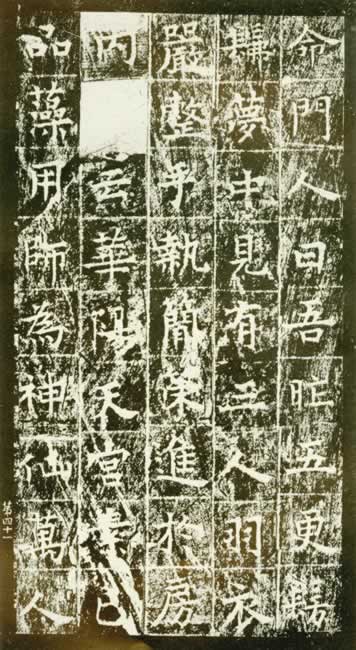 命門人曰吾昨五更髣
髴夢中見有三人羽衣
嚴整手執簡策進於房
內云華陽天宮已
品藻用師為神仙萬人
第四十二